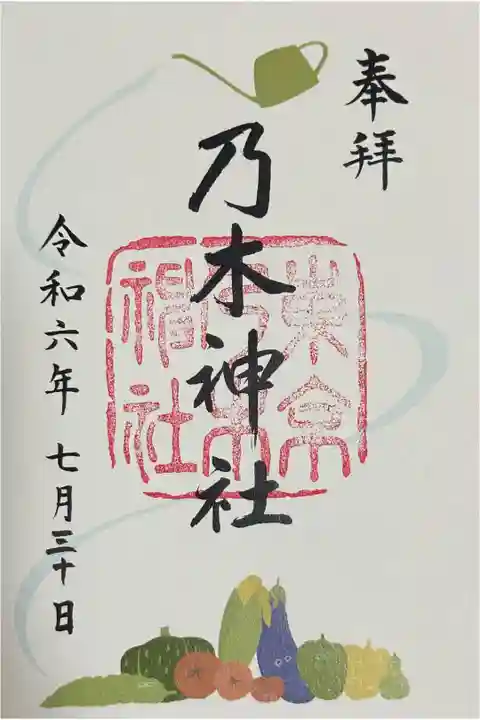 奉拝
東京
乃木
神社
乃木神社
令和六年 七月三十日